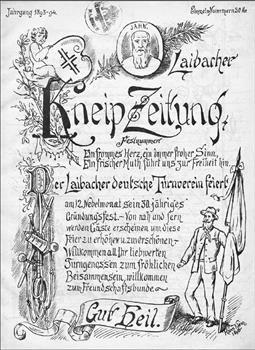 Jahrgang 1893-94.
Einzeln Nummern 20 Kr.
JAHN.
Laibacher
Kneip Zeitung.
Festnummer
Ein frommes Herz, ein immer froher Sinn,
Ein frischer Muth führt uns zur Freiheit hin.
Der Laibacher deutsche Turnverein feiert
am 12. Nebelmonat sein 30. jähriges
Gründungsfest. - Von nah und fern
werden Gäste erscheinen um diese
Feier zu erhöhen u. zu verschönen -
Willkommen all Ihr liebwerten
Turngenossen zum fröhlichen
Beisammensein, willkommen
zum Freundschaftsbunde
Gut Heil.